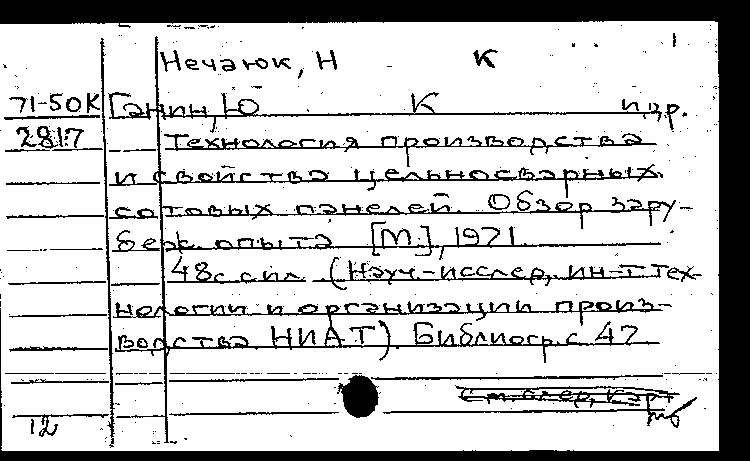 Нечаюк, Н К
71-50К Ганин, Ю К и др.
2817 Технология производства
и свойства цельносварных
сотовых панелей. Обзор зару-
беж. опыта [М.], 1971.
48с. с ил. (Науч-исслед. ин-т тех-
нологии и организации произ-
водства НИАТ). Библиогр. с 47
См. след. карт
12